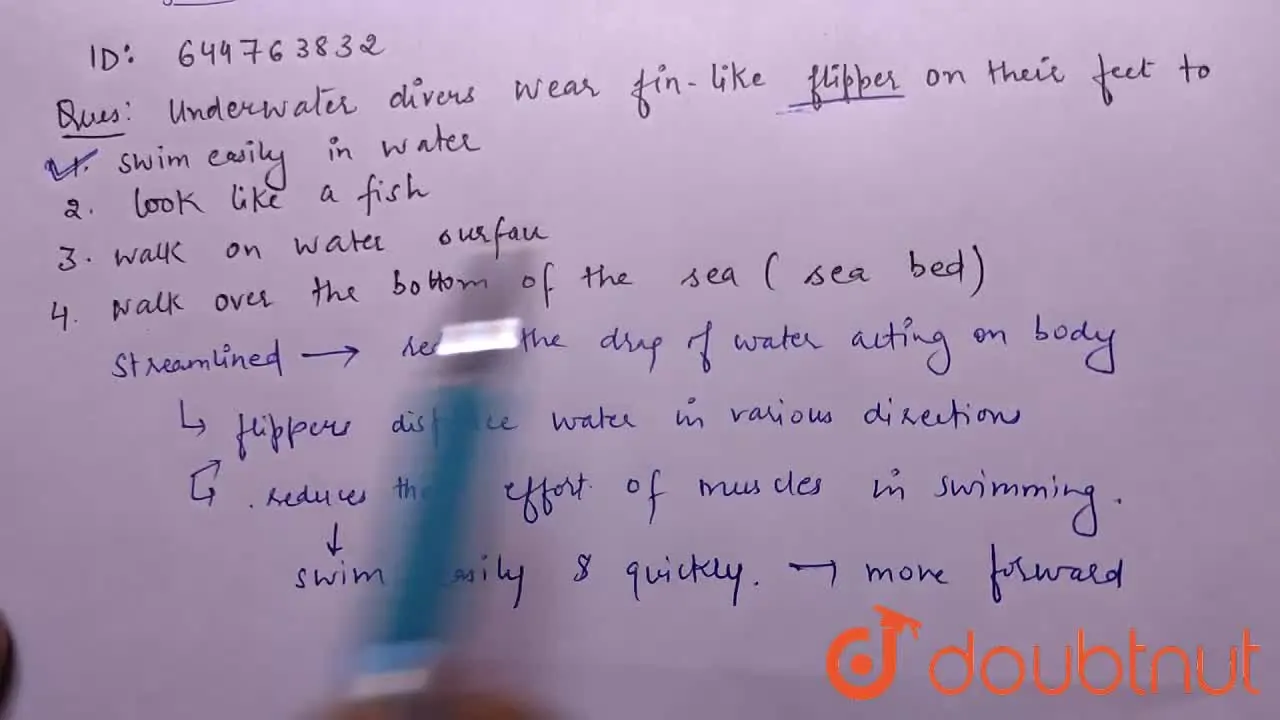 ID: 644763832
Ques: Underwater divers wear fin-like flipper on their feet to
1. swim easily in water
2. look like a fish
3. walk on water surface
4. walk over the bottom of the sea ( sea bed)
Streamlined → the drag of water acting on body
↳ flippers water in various directions
↳ . reduces effort of muscles in swimming.
↓
swim & quickly. → move forward
doubtnut